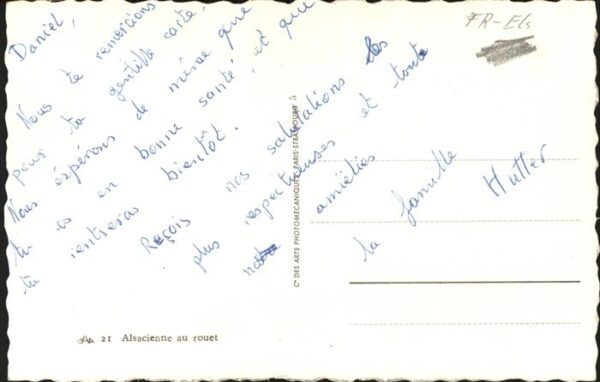 FR-Els
Daniel,
Nous te remercions
pour ta gentille carte.
Nous éspérons de même que
tu es en bonne santé, et que
tu rentreras bientôt.
Reçois nos salutations les
plus respectueuses et toute
amitiés
la famille Hutter
Cie DES ARTS PHOTOMECANIQUES, PARIS-STRASBOURG 5
21 Alsacienne au rouet